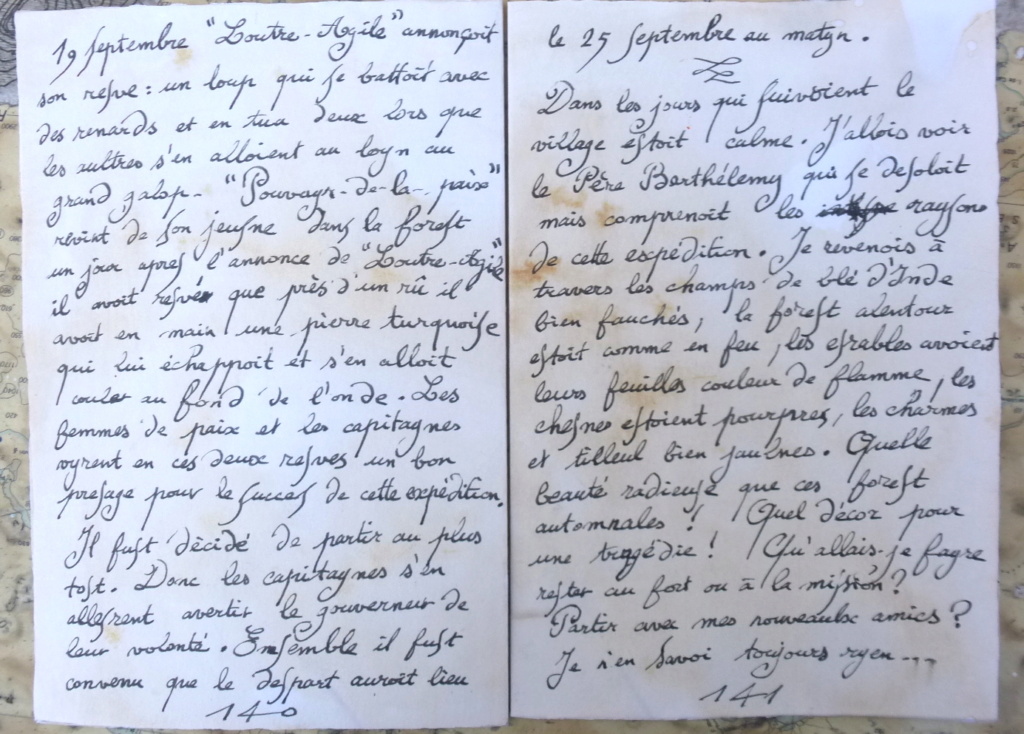 19 septembre "Loutre-Agile" annonçoit
son resve : un loup qui se battoit avec
des renards et en tua deux lors que
les aultres s'en alloient au loyn au
grand galop - "Pouvayr-de-la-paix"
revint de son jeusne dans la forest
un jour apres l'annonce de "Loutre-Agile"
il avoit resvé que près d'un rû il
avoit en main une pierre turquoise
qui lui échappoit et s'en alloit
couler au fond de l'onde. Les
femmes de paix et les capitaynes
vyrent en ces deux resves un bon
presage pour le succes de cette expédition.
Il fust décidé de partir au plus
tost. Donc les capitaynes s'en
allesrent avertir le gouverneur de
leur volonté. Ensemble il fust
convenu que le despart auroit lieu
140
le 25 septembre au matyn.
Dans les jours qui suivoient le
village estoit calme. J'allois voir
le Père Barthélemy qui se desoloit
mais comprenoit les raysons
de cette expédition. Je revenois à
travers les champs de blé d'Inde
bien fauchés, la forest alentour
estoit comme en feu, les esrables avoient
leurs feuilles couleur de flamme, les
chesnes estoient pourpres, les charmes
et tilleul bien jaulnes. Quelle
beauté radieuse que ces forest
automnales ! Quel décor pour
une tragédie ! Qu'allais-je fayre
rester au fort ou à la mission ?
Partir avec mes nouveaulx amics ?
Je n'en savoi toujours ryen ...
141